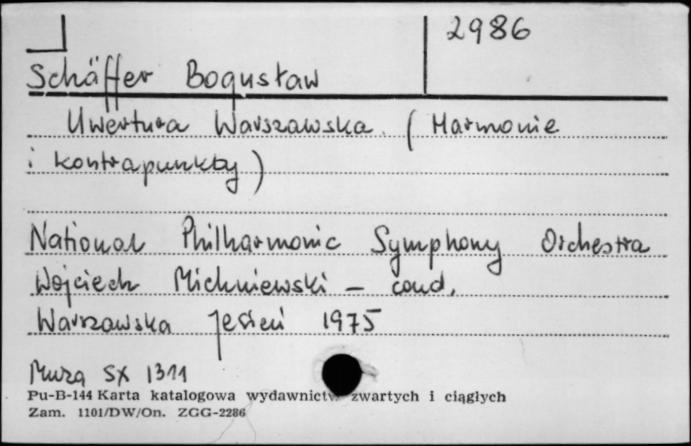 2986
Schäffer Bogusław
Uwertura Warszawska. (Harmonie
i kontrapunkty)
National Philharmonic Symphony Orchestra
Wojciech Michniewski – cond.
Warszawska Jesień 1975
Muza SX 1311
Pu-B-144 Karta katalogowa wydawnictw zwartych i ciągłych
Zam. 1101/DW/On. ZGG-2286